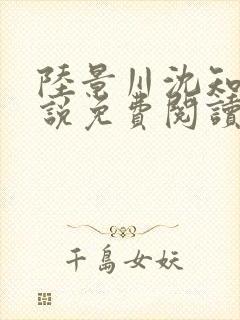 陸景川沈知
說免費閱讀
千島女妖